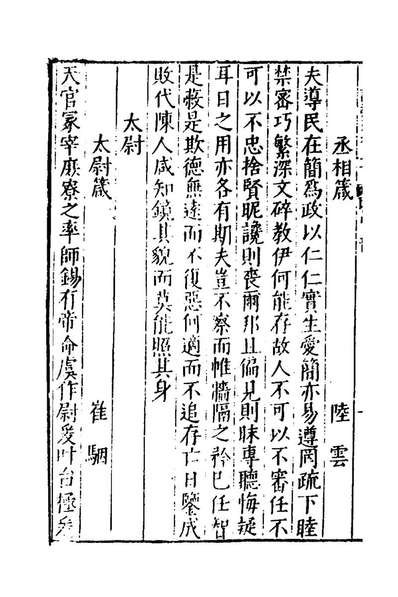 丞相箴　　陸雲
夫導民在簡爲政以仁仁實生愛簡亦易遵罔疏下睦
禁密巧繁深文碎教伊何能存故人不可以不審任不
可以不忠捨賢昵讒則喪爾邦且偏見則昧專聽悔疑
耳目之用亦各有期夫豈不察而帷牆隔之矜已任智
是蔽是欺德無遠而不復惡何適而不追存亡日鑒成
敗代陳人咸知鏡其貌而莫能照其身
太尉
太尉箴　　崔駰
天官冢宰庶寮之率師錫有帝命虞作尉爰叶台極